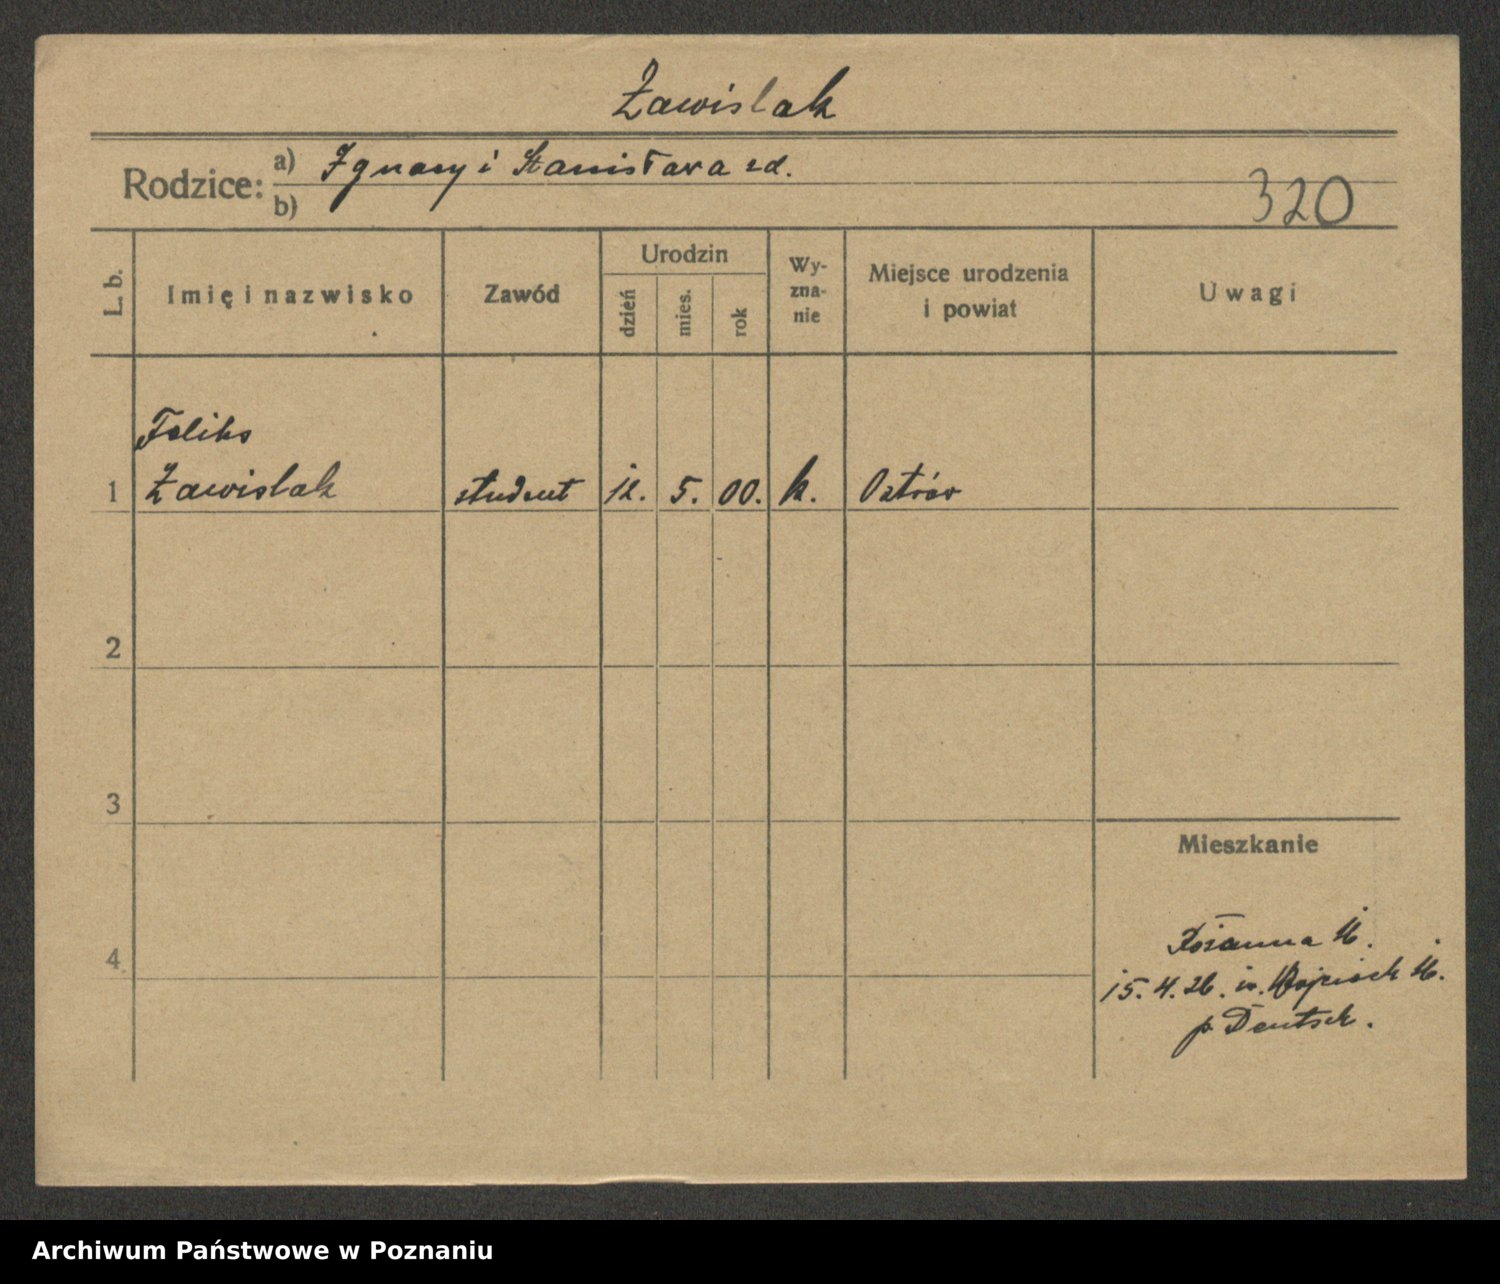 Zawislak
Rodzice: a) Ignacy i Stanisława zd.
b)
320
L. b.
Imię i nazwisko
Zawód
Urodzin
dzień
mies.
rok
Wy-
zna-
nie
Miejsce urodzenia
i powiat
Uwagi
Feliks
1 Zawislak student 12. 5. 00. k. Ostrów
2
3
Mieszkanie
4
14.
15. 4. 26. 16.
p. Deutsch.
Archiwum Państwowe w Poznaniu